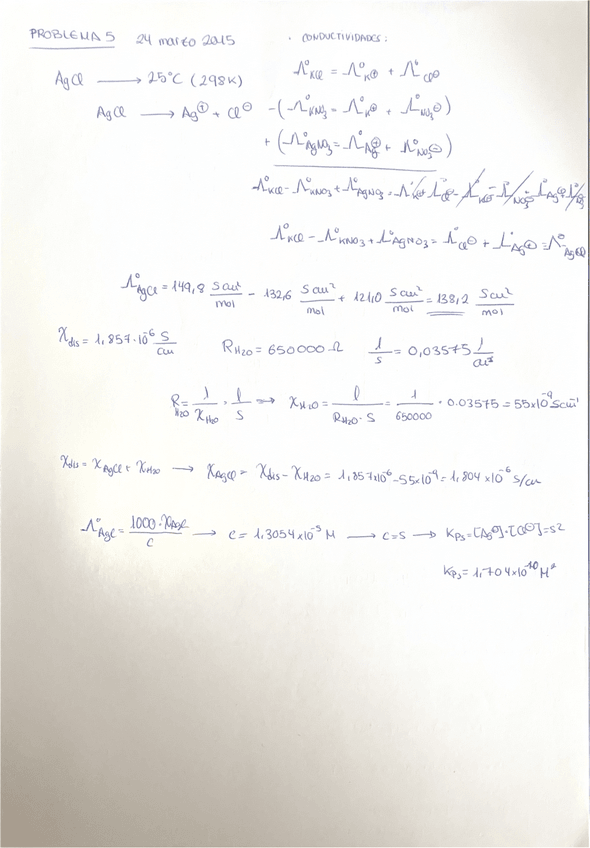 PROBLEMA 5 24 marzo 2015
· CONDUCTIVIDADES:
AgCl ⟶ 25°C (298K)
Λ°KCl = Λ°K⊕ + Λ°Cl⊖
AgCl ⟶ Ag⊕ + Cl⊖
-(Λ°KNO3 = Λ°K⊕ + Λ°NO3⊖)
+ (Λ°AgNO3 = Λ°Ag⊕ + Λ°NO3⊖)
Λ°KCl - Λ°KNO3 + Λ°AgNO3 = Λ°K⊕ + Λ°Cl⊖ - Λ°K⊕ - Λ°NO3⊖ + Λ°Ag⊕ + Λ°NO3
Λ°KCl - Λ°KNO3 + Λ°AgNO3 = Λ°Cl⊖ + Λ°Ag⊕ = Λ°AgCl
Λ°AgCl = 149,8 S cm²/mol - 132,6 S cm²/mol + 121,0 S cm²/mol = 138,2 S cm²/mol
χdis = 1,857·10⁻⁶ S/cm RH2O = 650000 Ω l/s = 0,03575 1/cm
R H2O = 1/χH2O · l/S ⟹ χH2O = l/(RH2O · S) = 1/650000 · 0.03575 = 55x10⁻⁹ S cm⁻¹
χdis = χAgCl + χH2O ⟶ χAgCl = χdis - χH2O = 1,857x10⁻⁶ - 55x10⁻⁹ = 1,804 x10⁻⁶ S/cm
Λ°AgCl = 1000·χAgCl/c ⟶ c = 1,3054x10⁻⁵ M ⟶ c=s ⟶ Kps = [Ag⊕]·[Cl⊖] = s2
Kps = 1,704x10⁻¹⁰ M²